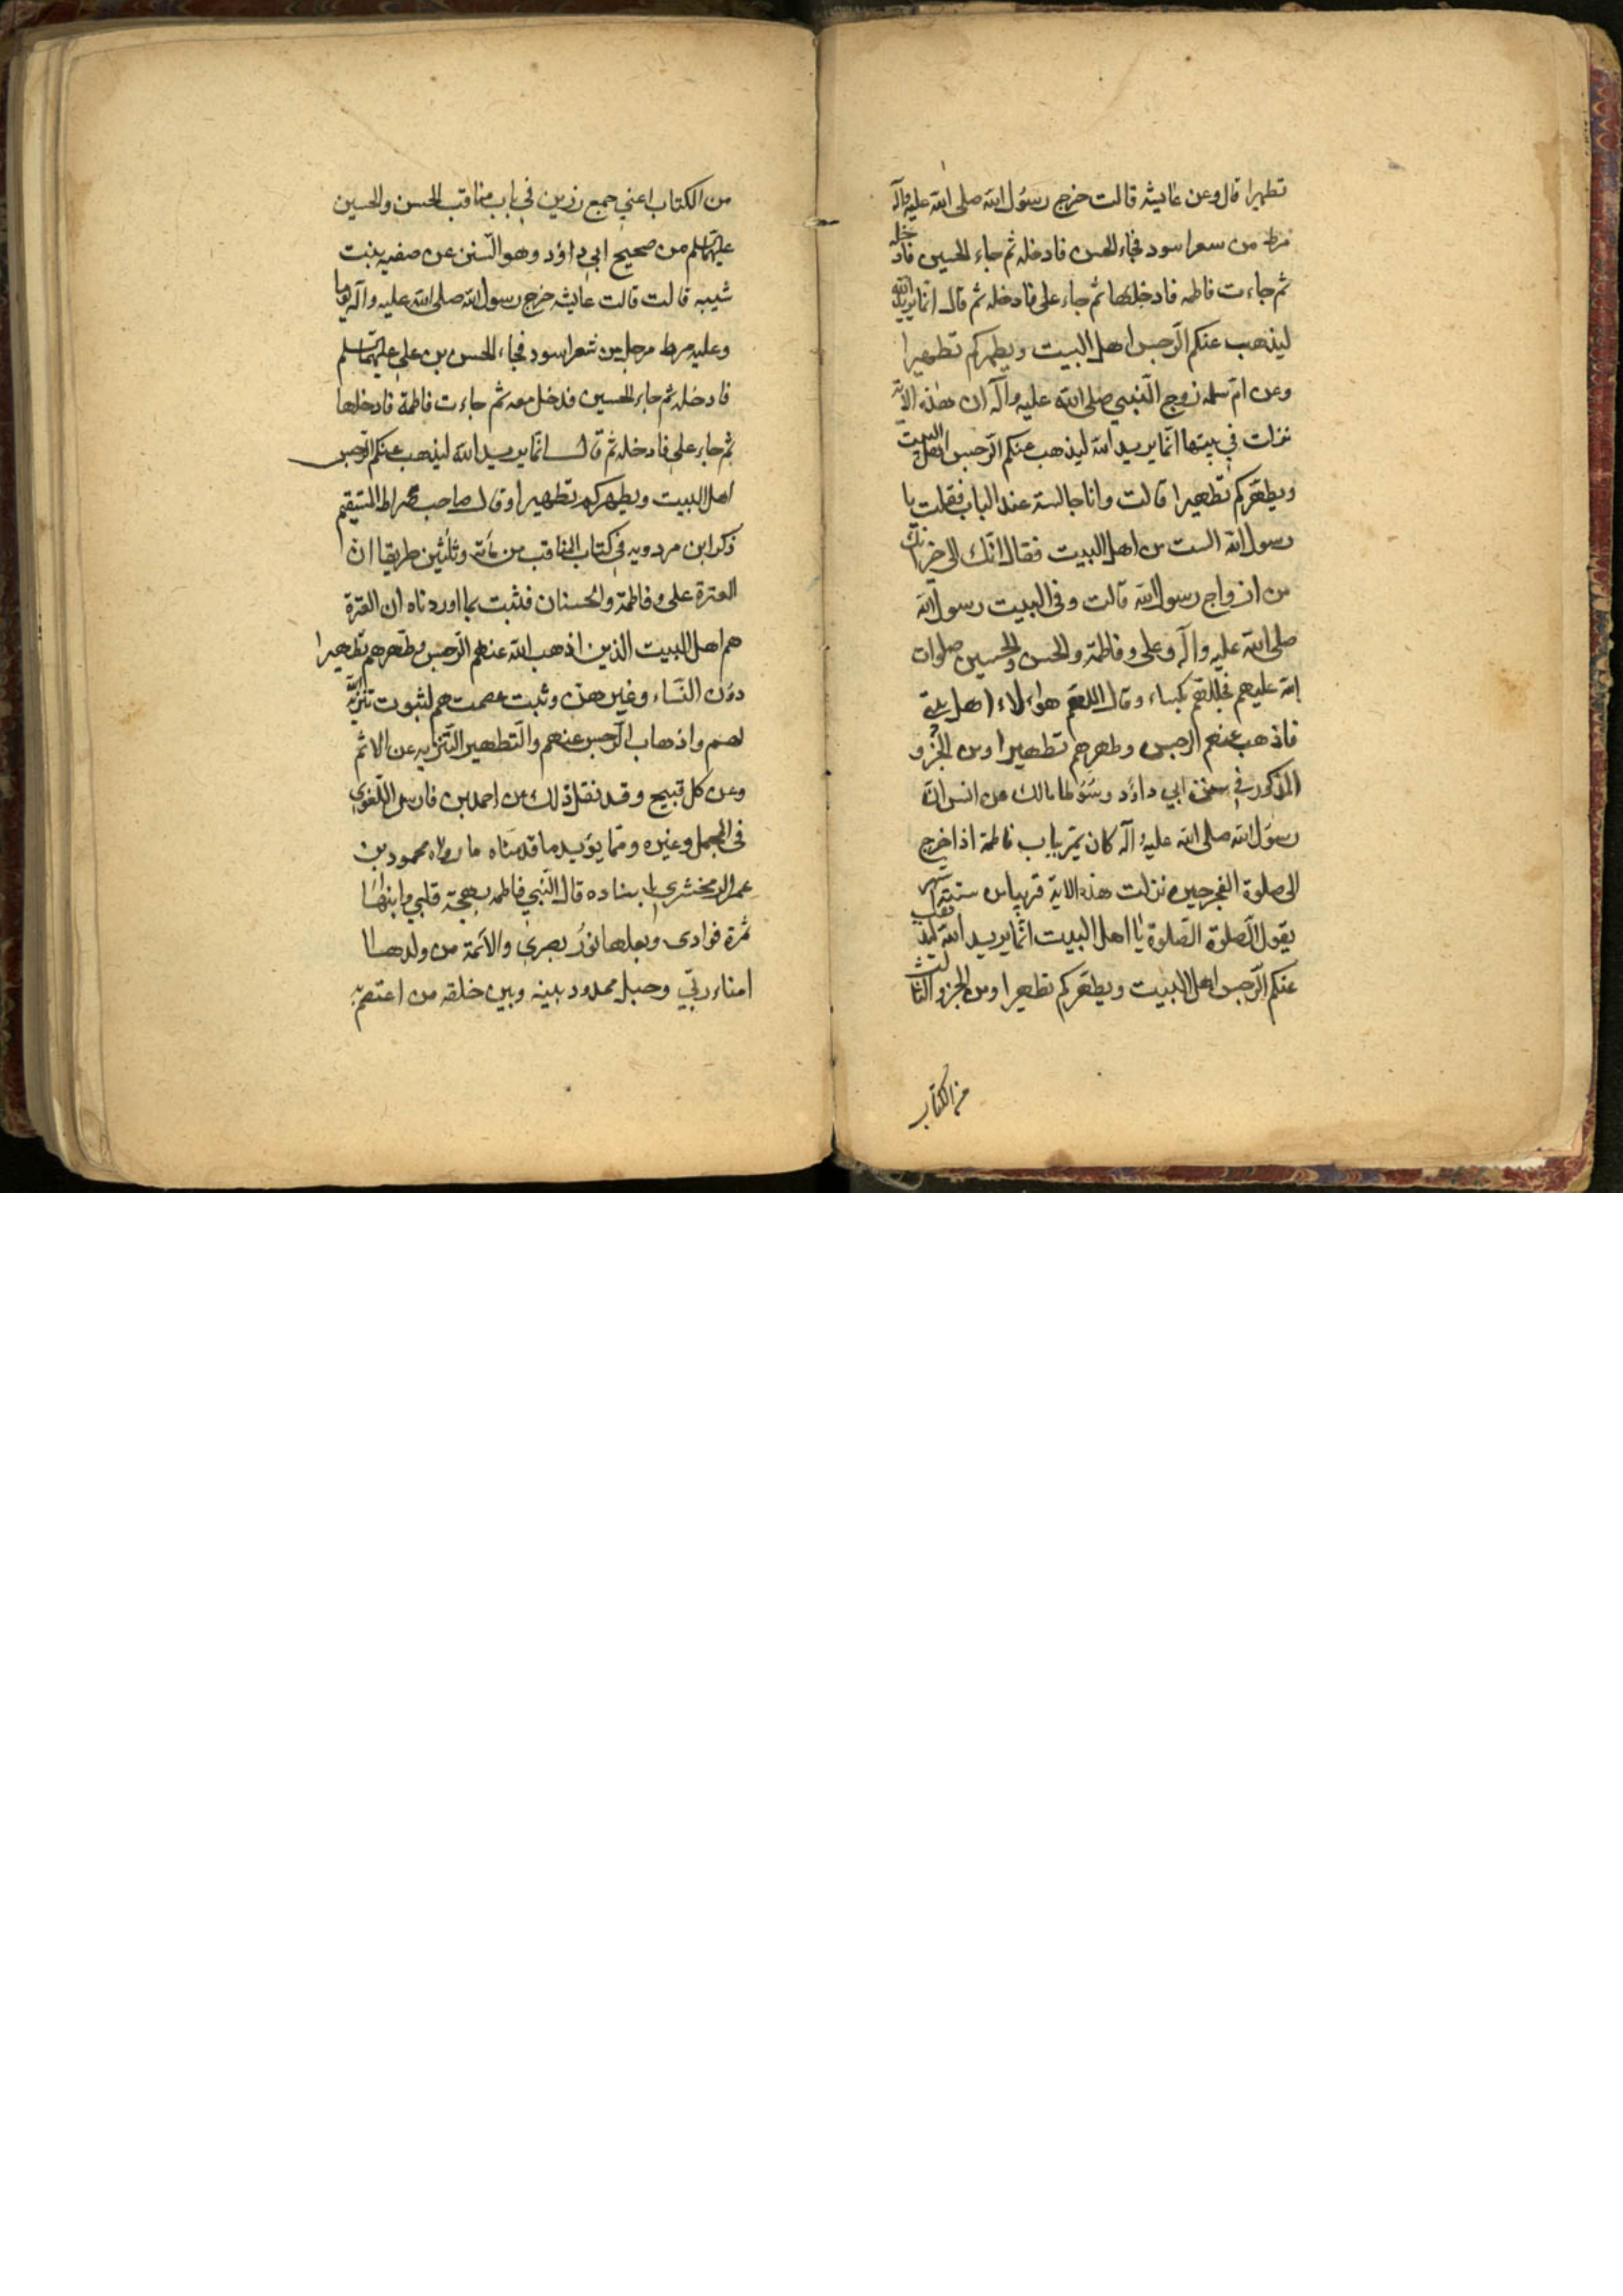 تطهيرا قال وعن عايشه قالت خرج رسول الله صلى الله عليه وآله
مرط من سعر اسود فجاء الحسن فادخله ثم جاء الحسين فادخله
ثم جاءت فاطمه فادخلها ثم جاء على فادخله ثم قال انما يريد الله
ليذهب عنكم الرجس اهل البيت ويطهركم تطهيرا
وعن ام سلمه زوج النبي صلى الله عليه وآله ان هذه الاية
نزلت في بيتها انما يريد الله ليذهب عنكم الرجس اهل البيت
ويطهركم تطهيرا قالت وانا جالسة عند الباب فقلت يا
رسول الله الست من اهل البيت فقال انك الى خير انك
من ازواج رسول الله قالت وفى البيت رسول الله
صلى الله عليه وآله وعلى وفاطمة والحسن والحسين صلوات
الله عليهم فجللهم بكساء وقال اللهم هؤلاء اهل بيتي
فاذهب عنهم الرجس وطهرهم تطهيرا ومن الجزو
المذكور في سنن ابي داؤد وموطا مالك عن انس ان
رسول الله صلى الله عليه وآله كان يمر بباب فاطمة اذا خرج
الى صلوة الفجر حين نزلت هذه الاية قريبا من ستة اشهر
يقول الصلوة الصلوة يا اهل البيت انما يريد الله ليذهب
عنكم الرجس اهل البيت ويطهركم تطهيرا ومن الجزو الثالث
من الكتاب
من الكتاب اعني جمع رزين في باب مناقب الحسن والحسين
عليهما السلم من صحيح ابي داؤد وهو السنن عن صفيه بنت
شيبه قالت قالت عايشه خرج رسول الله صلى الله عليه وآله يوما
وعليه مرط مرجل من شعر اسود فجاء الحسن بن علي عليهما السلم
فادخله ثم جاء الحسين فدخل معه ثم جاءت فاطمة فادخلها
ثم جاء على فادخله ثم قال انما يريد الله ليذهب عنكم الرجس
اهل البيت ويطهركم تطهيرا وقال صاحب صراط المستقيم
ذكر ابن مردويه في كتاب المناقب من مأئة وثلثين طريقا ان
العترة على وفاطمة والحسنان فثبت بما اوردناه ان العترة
هم اهل البيت الذين اذهب الله عنهم الرجس وطهرهم تطهيرا
دون النساء وغيرهن وثبت عصمتهم لثبوت تنزيه الله
لهم واذهاب الرجس عنهم والتطهير التنزيه عن الاثم
وعن كل قبيح وقد نقل ذلك عن احمد بن فارس اللغوي
فى المجمل وغيره ومما يؤيد ما قدمناه ما رواه محمود بن
عمر الزمخشري باسناده قال النبي فاطمه بهجة قلبي وابناها
ثمرة فوادى وبعلها نور بصري والائمة من ولدها
امناء ربي وحبل ممدود بينه وبين خلقه من اعتصم به